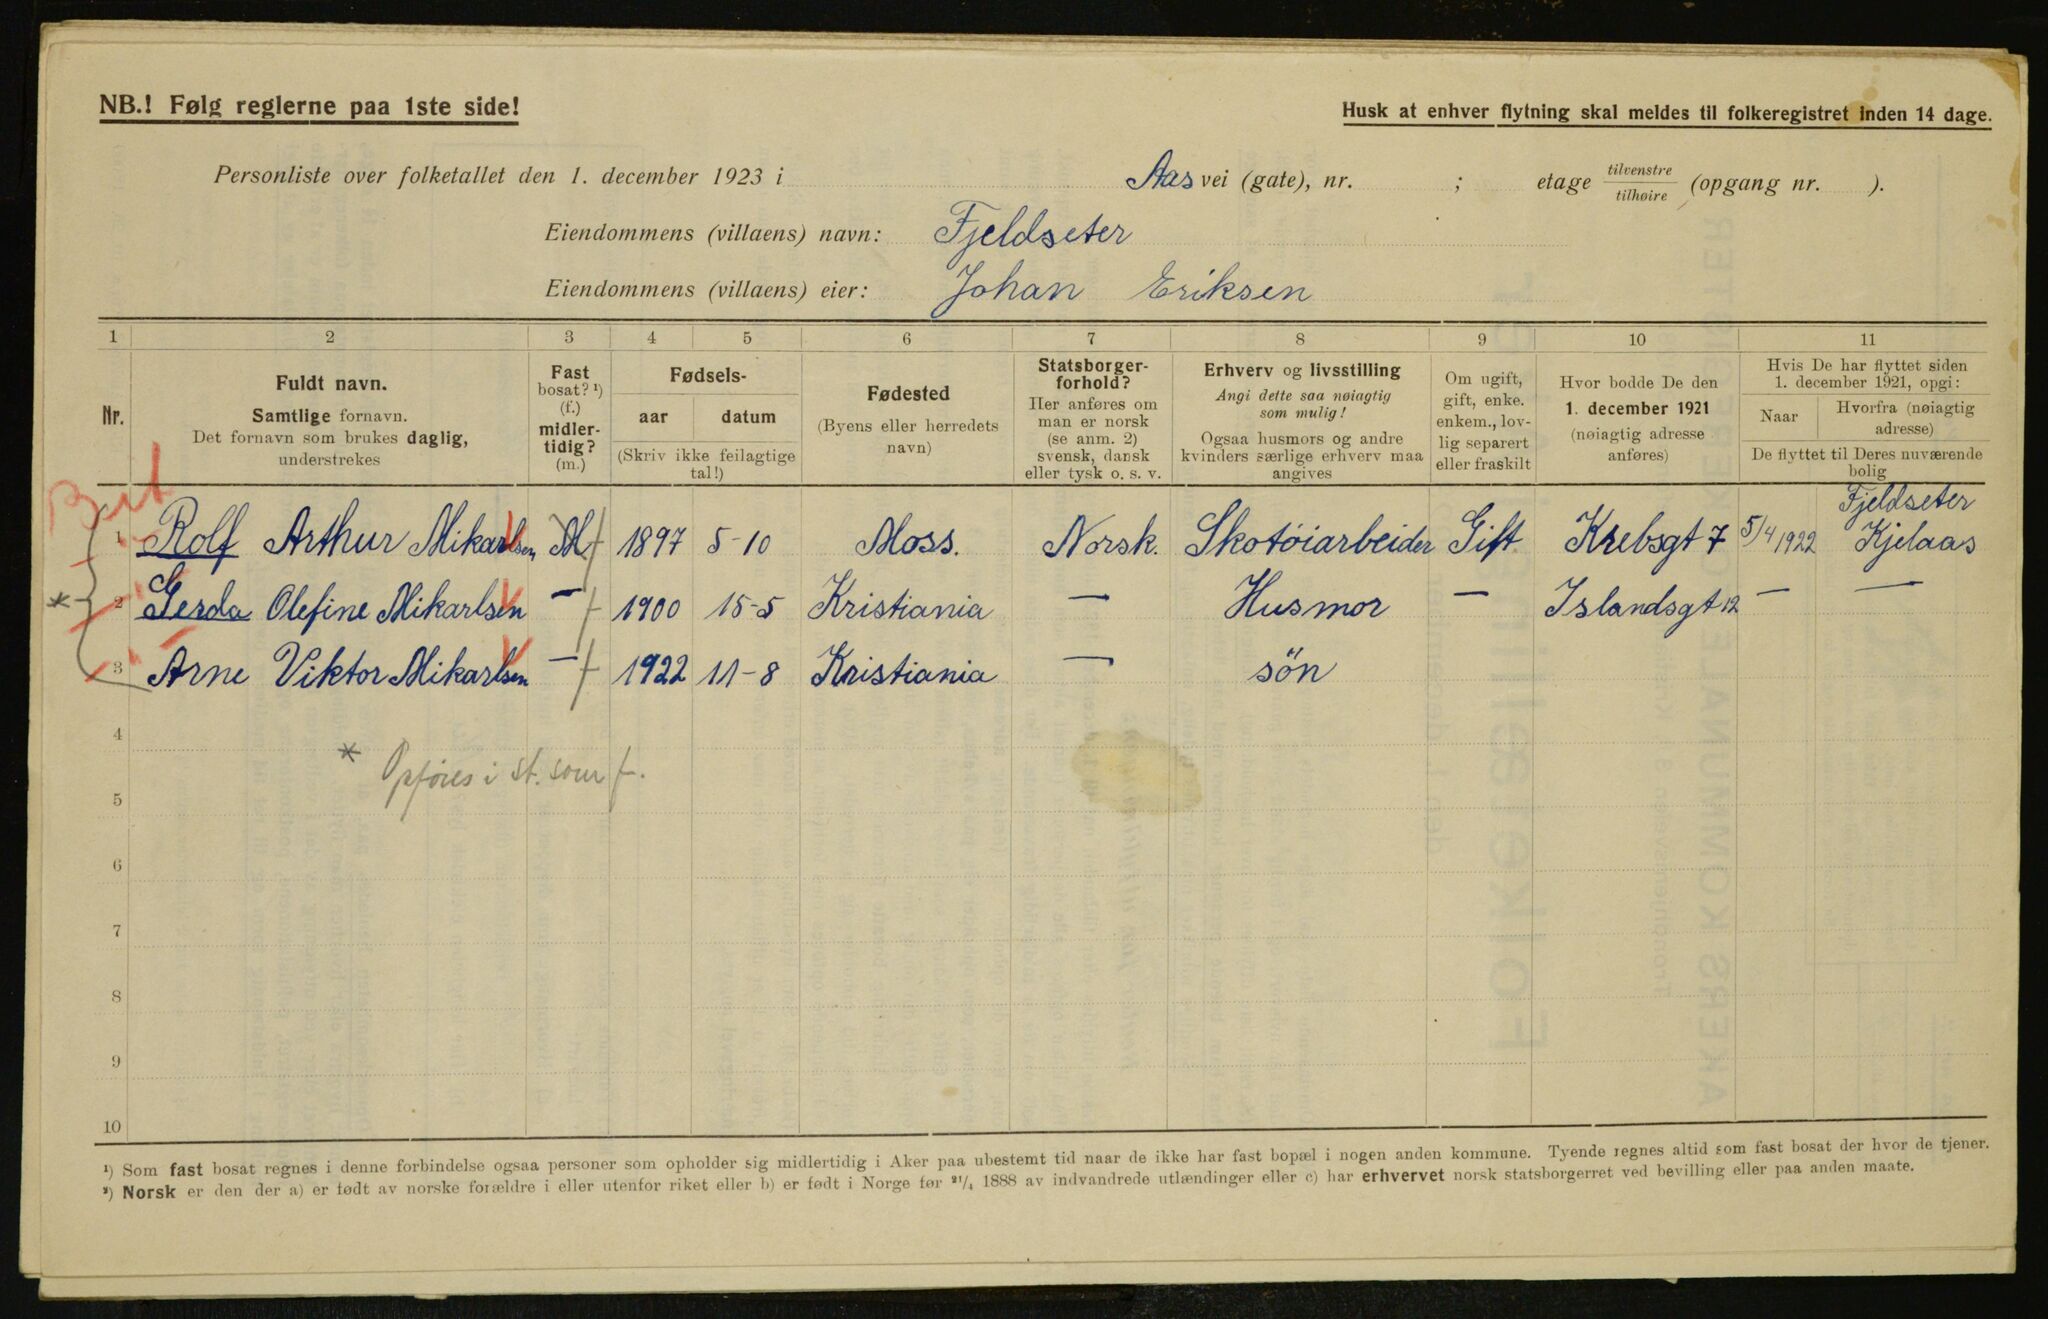 NB.! Følg reglerne paa 1ste side!
Husk at enhver flytning skal meldes til folkeregistret inden 14 dage.
Personliste over folketallet den 1. december 1923 i Aas vei (gate), nr. ; etage tilvenstre/tilhøire (opgang nr. ).
Eiendommens (villaens) navn: Fjeldseter
Eiendommens (villaens) eier: Johan Eriksen
1 2 3 4 5 6 7 8 9 10 11
Nr.
Fuldt navn.
Samtlige fornavn.
Det fornavn som brukes daglig,
understrekes
Fast
bosat? ¹)
(f.)
midler-
tidig?
(m.)
Fødsels-
aar datum
(Skriv ikke feilagtige
tal!)
Fødested
(Byens eller herredets
navn)
Statsborger-
forhold?
Her anføres om
man er norsk
(se anm. 2)
svensk, dansk
eller tysk o. s. v.
Erhverv og livsstilling
Angi dette saa nøiagtig
som mulig!
Ogsaa husmors og andre
kvinders særlige erhverv maa
angives
Om ugift,
gift, enke.
enkem., lov-
lig separert
eller fraskilt
Hvor bodde De den
1. december 1921
(nøiagtig adresse
anføres)
Hvis De har flyttet siden
1. december 1921, opgi:
Naar Hvorfra (nøiagtig
adresse)
De flyttet til Deres nuværende
bolig
1 Rolf Arthur Mikarlsen M f 1897 5-10 Moss. Norsk. Skotøiarbeider Gift Krebsgt 7 5/4 1922 Fjeldseter
Kjelaas
* 2 Gerda Olefine Mikarlsen — f 1900 15-5 Kristiania — Husmor — Islandsgt 12 — —
3 Arne Viktor Mikarlsen — f 1922 11-8 Kristiania — søn
4
* Opføres i st. som f.
5
6
7
8
9
10
¹) Som fast bosat regnes i denne forbindelse ogsaa personer som opholder sig midlertidig i Aker paa ubestemt tid naar de ikke har fast bopæl i nogen anden kommune. Tyende regnes altid som fast bosat der hvor de tjener.
²) Norsk er den der a) er født av norske forældre i eller utenfor riket eller b) er født i Norge før ²¹/₄ 1888 av indvandrede utlændinger eller c) har erhvervet norsk statsborgerret ved bevilling eller paa anden maate.